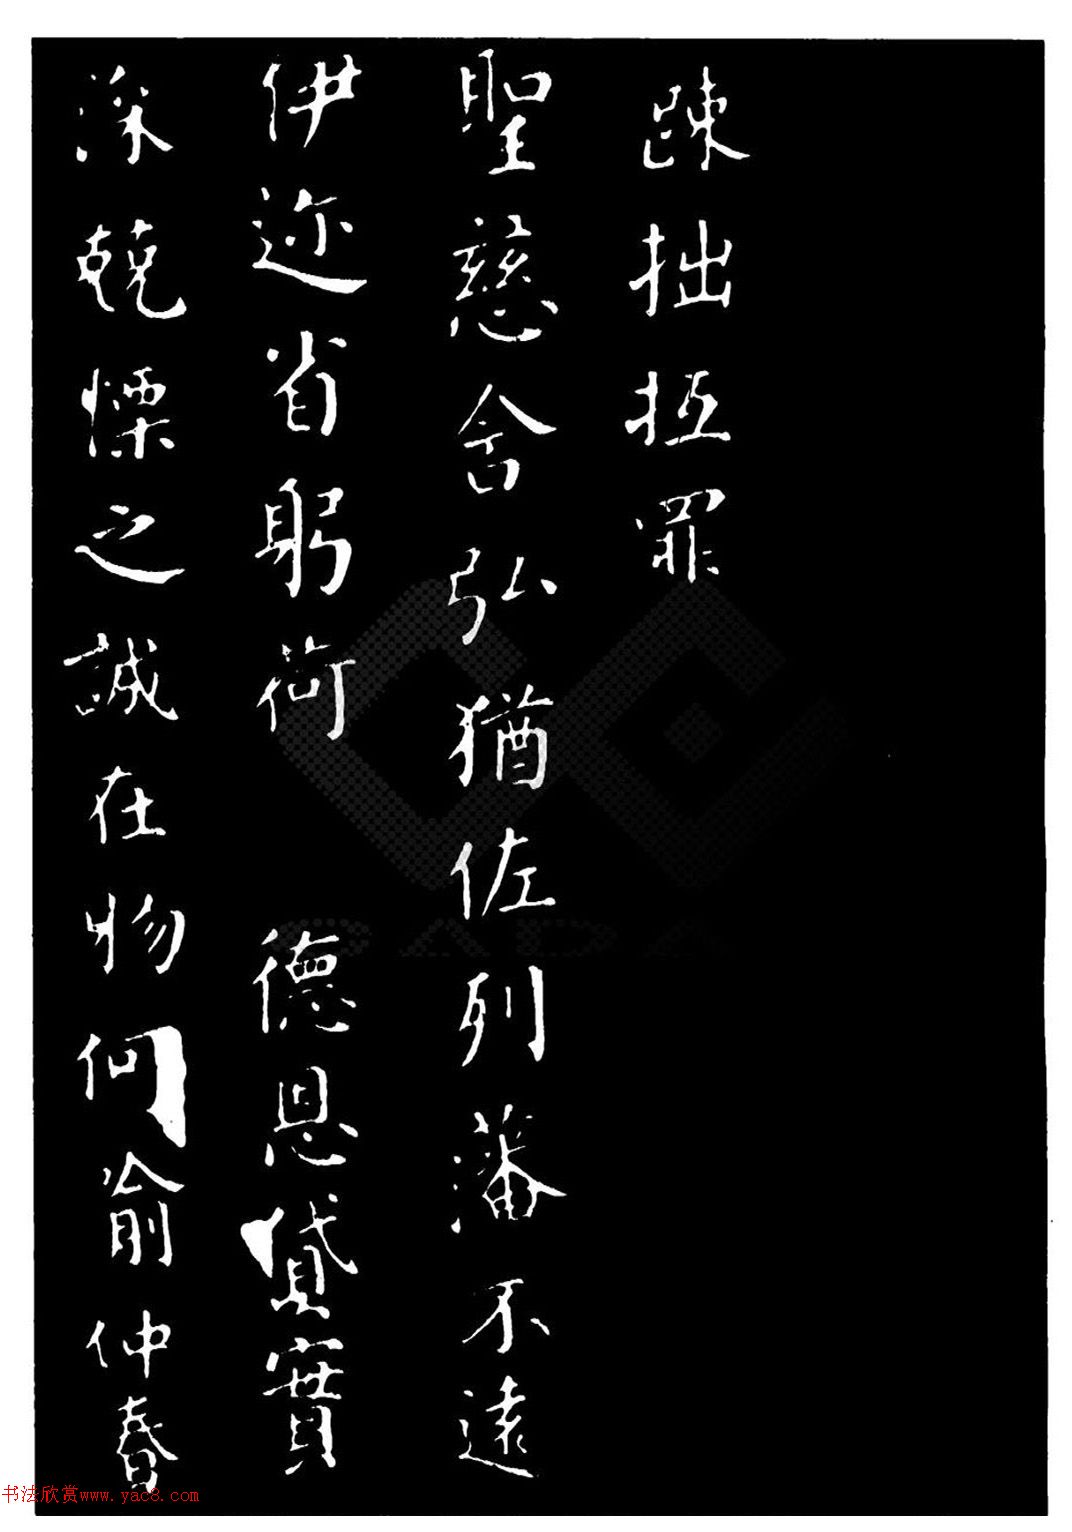 踈拙抵罪
聖慈舍弘猶佐列藩不遠
伊迩省躬荷德恩貸實
深兢慄之誠在物何喻仲春
书法欣赏www.yac8.com